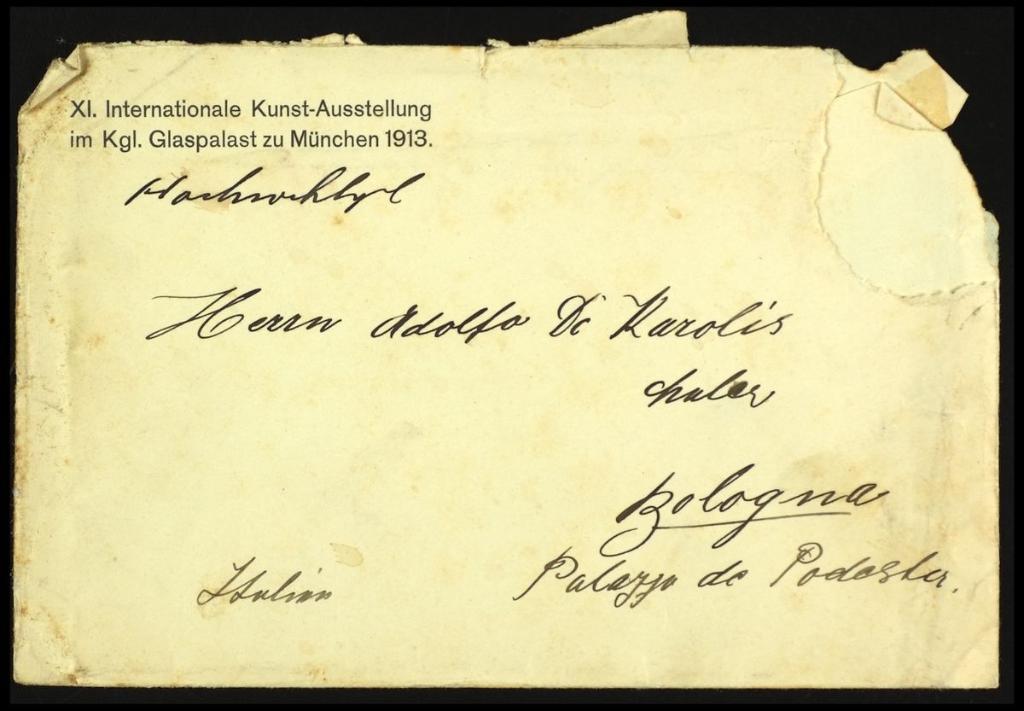 XI. Internationale Kunst-Ausstellung
im Kgl. Glaspalast zu München 1913.
Hochwohlgb
Herrn Adolfo De Karolis
Maler
Bologna
Palazzo de Podesta.
Italien